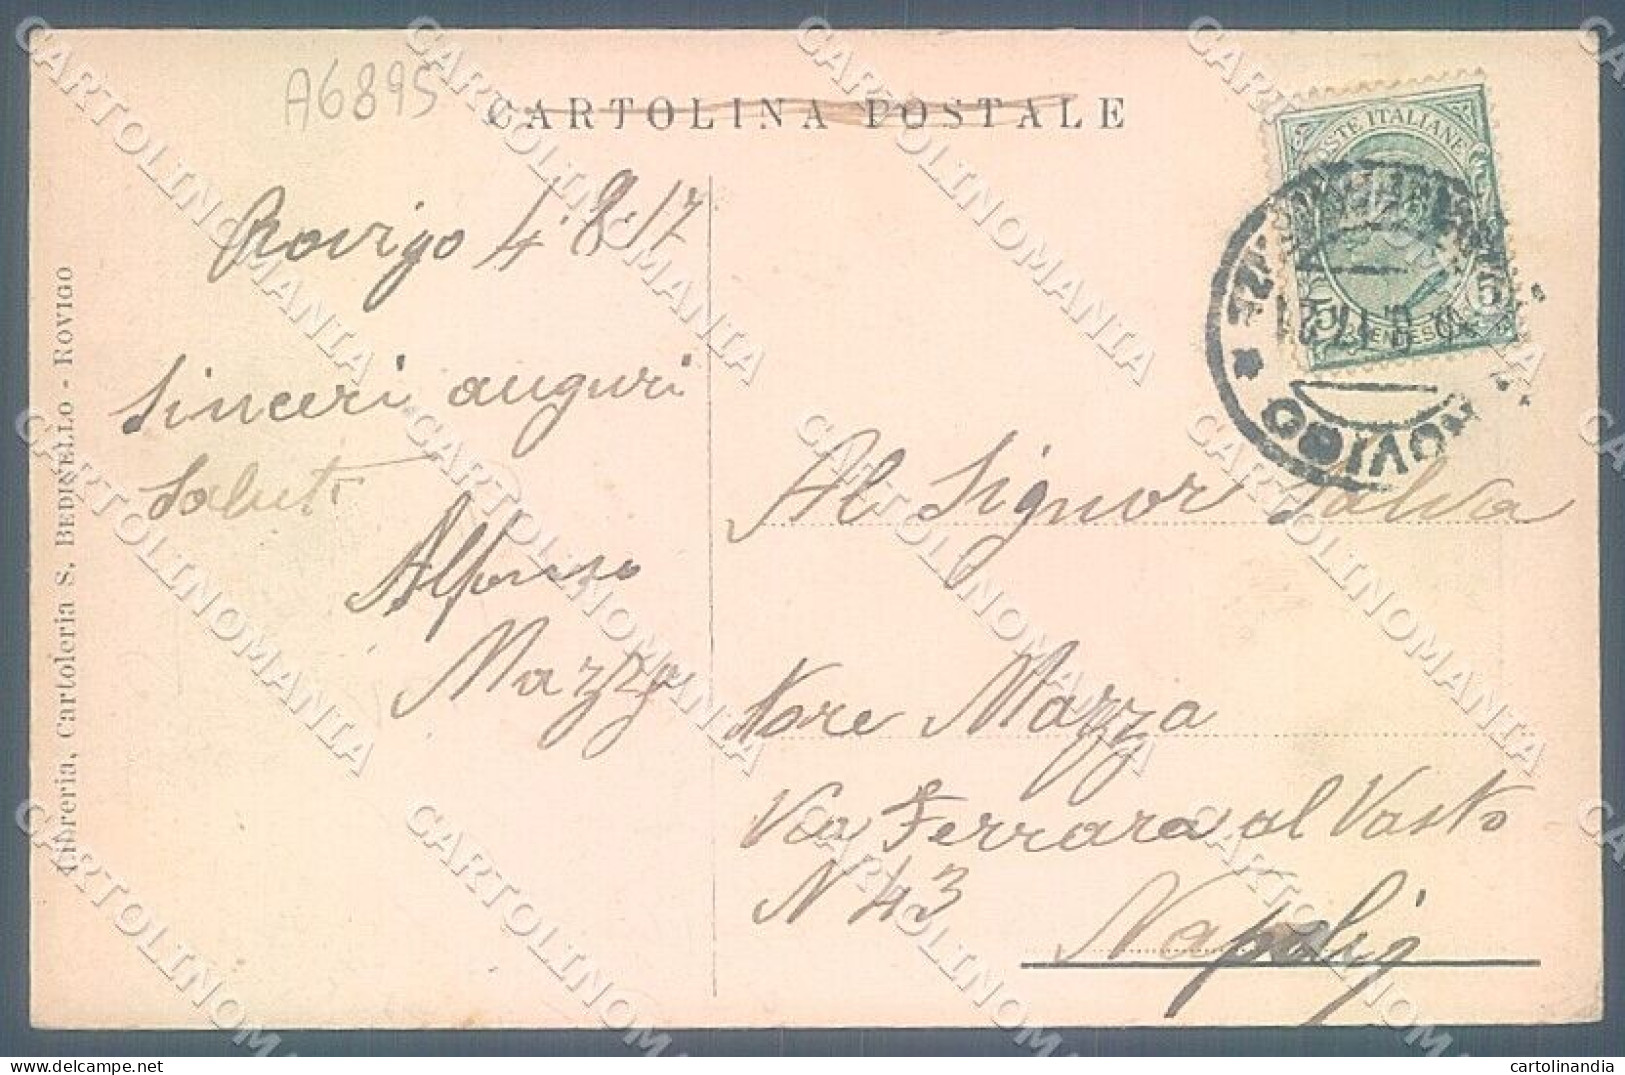 A6895
CARTOLINA POSTALE
POSTE ITALIANE
5 5
CENTESIMI
ROVIGO
Rovigo 4.8.17
Sinceri auguri
Saluti
Alfonso
Mazza
Al Signor Salva
tore Mazza
Via Ferrara al Vasto
N 43
Napoli
Libreria, Cartoleria S. BEDINELLO - ROVIGO
CARTOLINOMANIA
cartolinandia